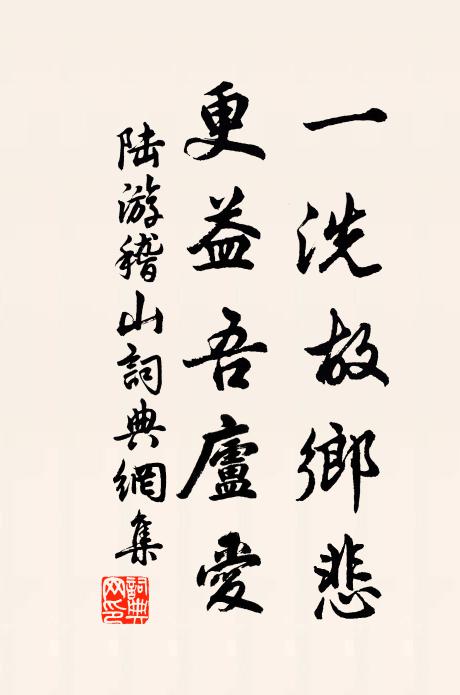 一洗故鄉悲
更益吾廬愛
陸游稽山詞典網集
詞典網印